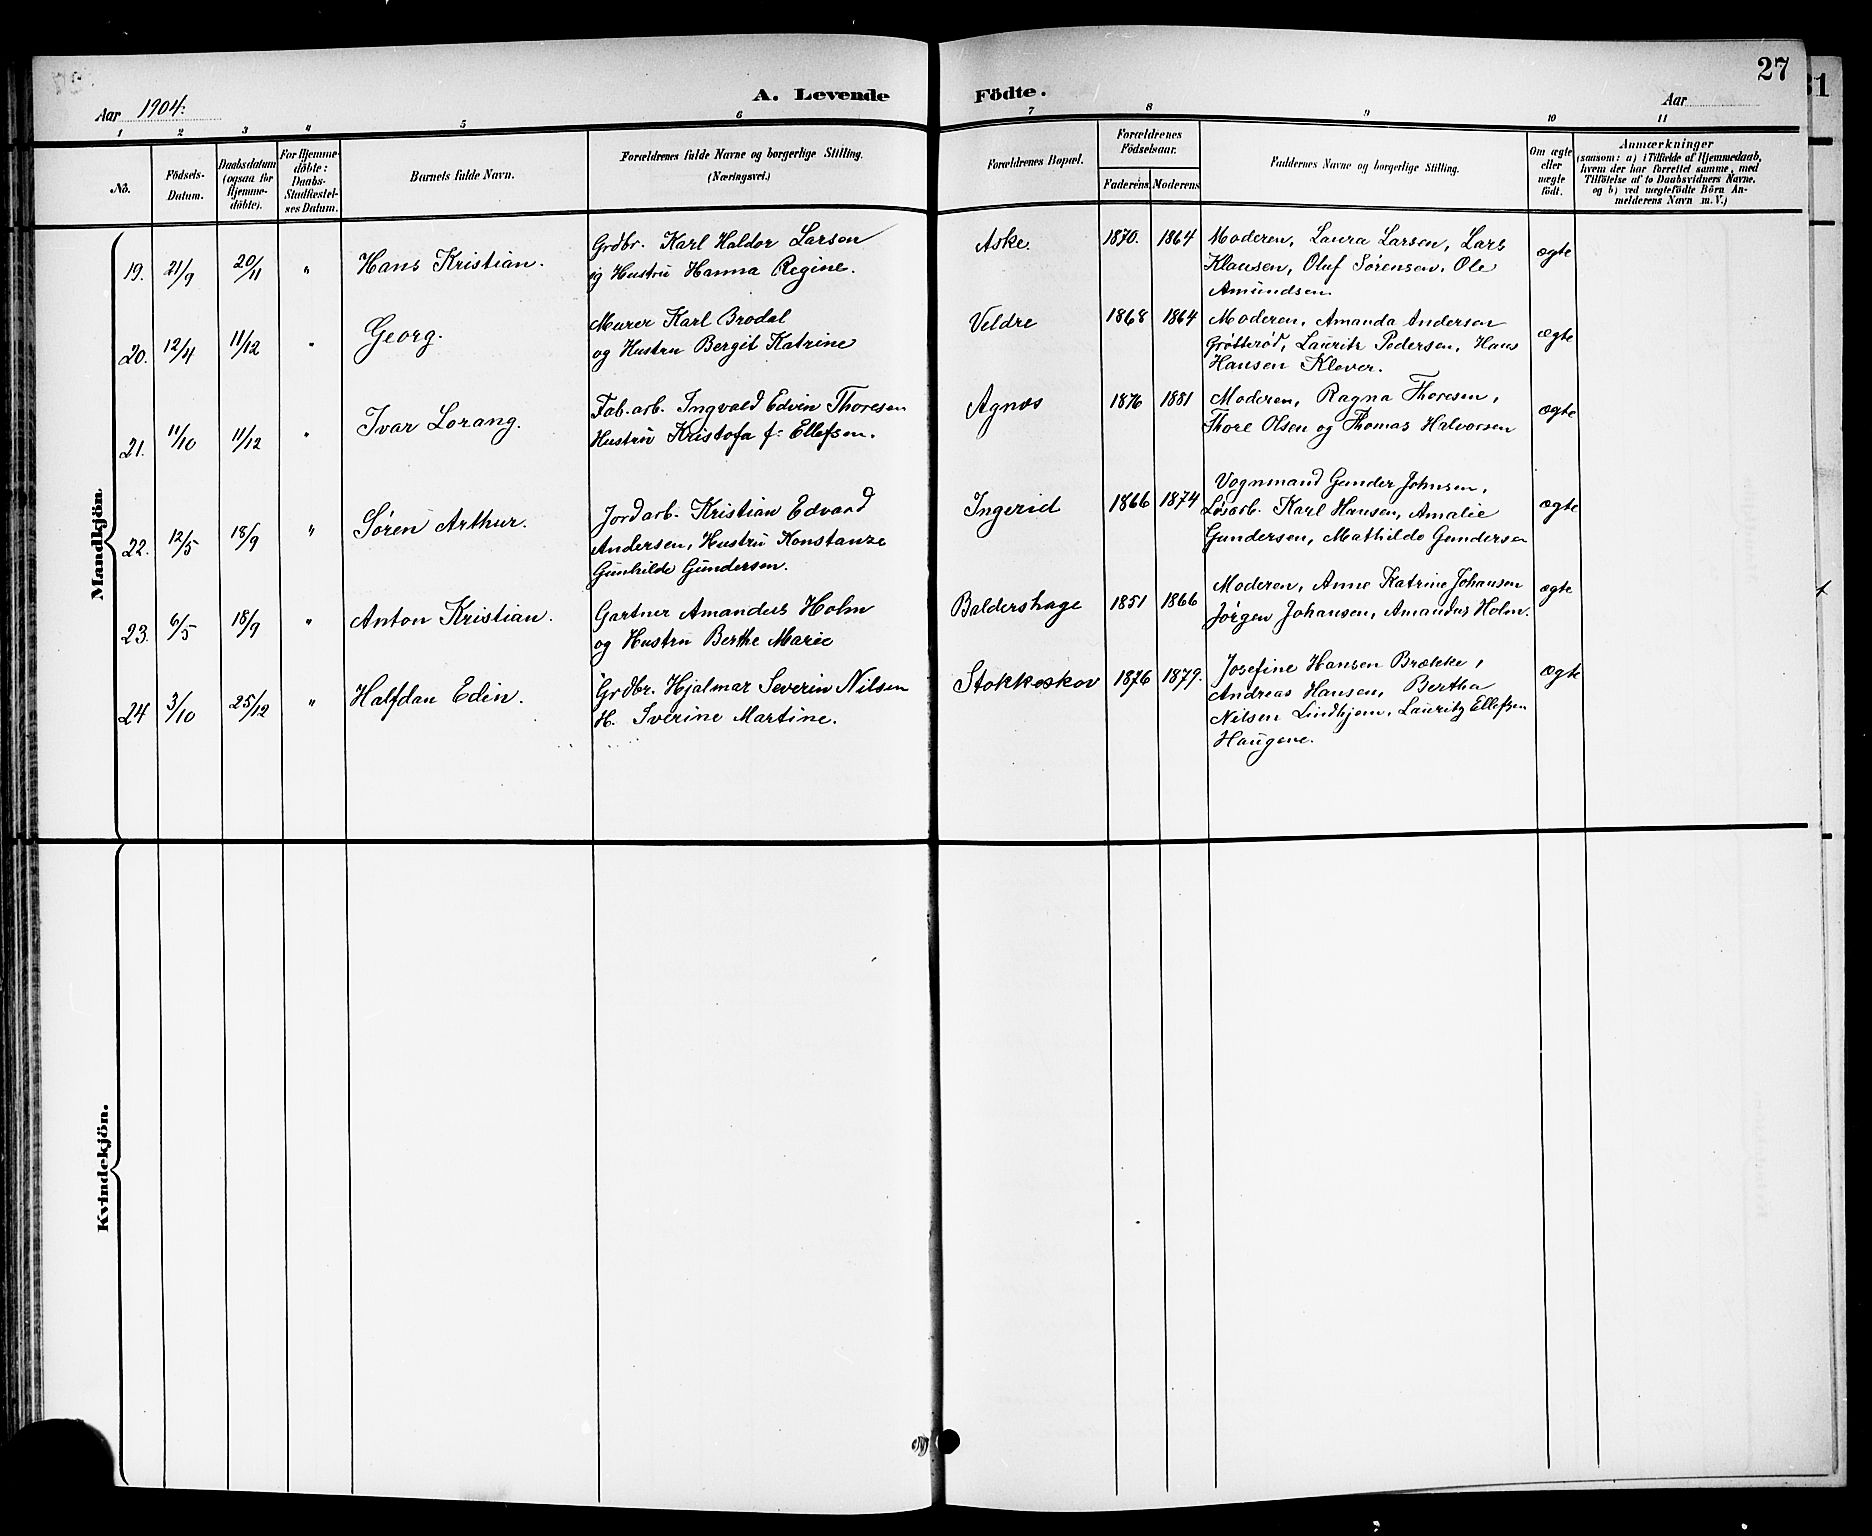 27
Aar 1904.
A. Levende Födte.
Aar
1 2 3 " 5 6 7 8 9 10 11
No.
Födsels-
Datum.
Daabsdatum
(ogsaa for
Hjemme-
döbte).
For Hjemme-
döbte:
Daabs-
Stadfæstel-
ses Datum.
Barnets fulde Navn.
Forældrenes fulde Navne og borgerlige Stilling.
(Næringsvei.)
Forældrenes Bopæl.
Forældrenes
Födselsaar.
Faderens Moderens
Faddernes Navne og borgerlige Stilling.
Om ægte
eller
uægte
födt.
Anmærkninger
(saasom: a) i Tilfælde af Hjemmedaab,
hvem der har forrettet samme, med
Tilföielse af to Daabsvidners Navne,
og b) ved uægtefödte Börn An-
melderens Navn m. V.)
Mandkjön.
19. 21/9 20/11 " Hans Kristian.
Grdbr. Karl Haldor Larsen
og Hustru Hanna Regine.
Aske. 1870. 1864
Moderen, Laura Larsen, Lars
Klausen, Oluf Sørensen, Ole
Amundsen.
ægte
20. 12/4 11/12 " Georg.
Murer Karl Brodal
og Hustru Bergit Katrine
Veldre 1868 1864
Moderen, Amanda Andersen
Grøtterød, Lauritz Pedersen, Hans
Hansen Klever.
ægte
21. 11/10 11/12 " Ivar Lorang.
Fab. arb. Ingvald Edvin Thoresen
Hustru Kristofa f. Ellefsen.
Agnes 1876 1881
Moderen, Ragna Thoresen,
Thore Olsen og Thomas Halvorsen
ægte
22. 12/5 18/9 " Søren Arthur.
Jordarb. Kristian Edvard
Andersen, Hustru Konstanze
Gunhilde Gundersen.
Ingerid 1866 1874
Vognmand Gunder Johnsen,
Løsarb. Karl Hansen, Amalie
Gundersen, Mathilde Gundersen
ægte
23. 6/5 18/9 " Anton Kristian.
Gartner Amandus Holm
og Hustru Berthe Marie
Baldershage 1851 1866
Moderen, Anne Katrine Johansen
Jørgen Johansen, Amandus Holm.
ægte
24 3/10 25/12 " Halfdan Edin.
Grdbr. Hjalmar Severin Nilsen
H. Sverine Martine.
Stokkeskov 1876 1879.
Josefine Hansen Brække,
Andreas Hansen, Berthe
Nilsen Lindhjem, Lauritz Ellefsen
Haugene.
ægte
Kvindekjön.